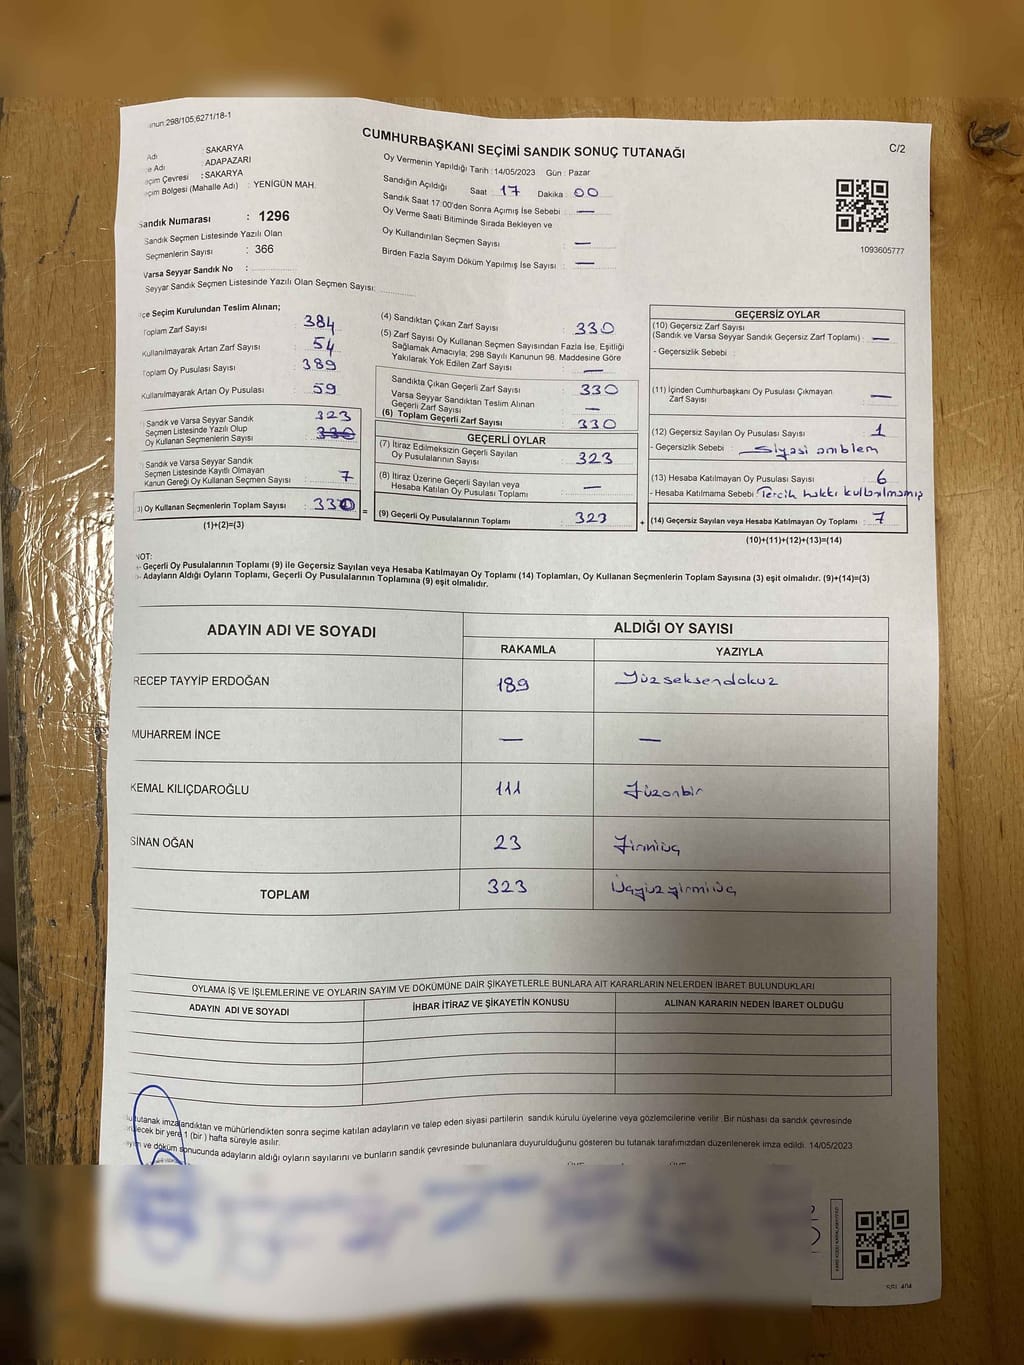 298/105;6271/18-1
CUMHURBAŞKANI SEÇİMİ SANDIK SONUÇ TUTANAĞI
C/2
Adı : SAKARYA
Adı : ADAPAZARI
Çevresi : SAKARYA
Bölgesi (Mahalle Adı) : YENİGÜN MAH.
Sandık Numarası : 1296
Sandık Seçmen Listesinde Yazılı Olan
Seçmenlerin Sayısı : 366
Varsa Seyyar Sandık No :
Seyyar Sandık Seçmen Listesinde Yazılı Olan Seçmen Sayısı:
Oy Vermenin Yapıldığı Tarih : 14/05/2023 Gün : Pazar
Sandığın Açıldığı Saat 17 Dakika : 00
Sandık Saat 17:00'den Sonra Açımış İse Sebebi : —
Oy Verme Saati Bitiminde Sırada Bekleyen ve
Oy Kullandırılan Seçmen Sayısı : —
Birden Fazla Sayım Döküm Yapılmış İse Sayısı : —
1093605777
Seçim Kurulundan Teslim Alınan;
Toplam Zarf Sayısı : 384
Kullanılmayarak Artan Zarf Sayısı : 54
Toplam Oy Pusulası Sayısı : 389
Kullanılmayarak Artan Oy Pusulası : 59
Sandık ve Varsa Seyyar Sandık 323
Seçmen Listesinde Yazılı Olup 330
Oy Kullanan Seçmenlerin Sayısı
Sandık ve Varsa Seyyar Sandık
Seçmen Listesinde Kayıtlı Olmayan
Kanun Gereği Oy Kullanan Seçmen Sayısı : 7
Oy Kullanan Seçmenlerin Toplam Sayısı : 330 =
(1)+(2)=(3)
(4) Sandıktan Çıkan Zarf Sayısı : 330
(5) Zarf Sayısı Oy Kullanan Seçmen Sayısından Fazla İse, Eşitliği
Sağlamak Amacıyla; 298 Sayılı Kanunun 98. Maddesine Göre
Yakılarak Yok Edilen Zarf Sayısı : —
Sandıkta Çıkan Geçerli Zarf Sayısı : 330
Varsa Seyyar Sandıktan Teslim Alınan
Geçerli Zarf Sayısı : —
(6) Toplam Geçerli Zarf Sayısı : 330
GEÇERLİ OYLAR
(7) İtiraz Edilmeksizin Geçerli Sayılan
Oy Pusulalarının Sayısı : 323
(8) İtiraz Üzerine Geçerli Sayılan veya
Hesaba Katılan Oy Pusulası Toplamı : —
(9) Geçerli Oy Pusulalarının Toplamı : 323 +
GEÇERSİZ OYLAR
(10) Geçersiz Zarf Sayısı
(Sandık ve Varsa Seyyar Sandık Geçersiz Zarf Toplamı) : —
- Geçersizlik Sebebi :
(11) İçinden Cumhurbaşkanı Oy Pusulası Çıkmayan
Zarf Sayısı : —
(12) Geçersiz Sayılan Oy Pusulası Sayısı : 1
- Geçersizlik Sebebi : Siyasi amblem
(13) Hesaba Katılmayan Oy Pusulası Sayısı : 6
- Hesaba Katılmama Sebebi : Tercih hakkı kullanılmamış
(14) Geçersiz Sayılan veya Hesaba Katılmayan Oy Toplamı : 7
(10)+(11)+(12)+(13)=(14)
NOT:
- Geçerli Oy Pusulalarının Toplamı (9) ile Geçersiz Sayılan veya Hesaba Katılmayan Oy Toplamı (14) Toplamları, Oy Kullanan Seçmenlerin Toplam Sayısına (3) eşit olmalıdır. (9)+(14)=(3)
- Adayların Aldığı Oyların Toplamı, Geçerli Oy Pusulalarının Toplamına (9) eşit olmalıdır.
ADAYIN ADI VE SOYADI
ALDIĞI OY SAYISI
RAKAMLA YAZIYLA
RECEP TAYYİP ERDOĞAN 189 Yüzseksendokuz
MUHARREM İNCE — —
KEMAL KILIÇDAROĞLU 111 Yüzonbir
SİNAN OĞAN 23 Yirmiüç
TOPLAM 323 Üçyüzyirmiüç
OYLAMA İŞ VE İŞLEMLERİNE VE OYLARIN SAYIM VE DÖKÜMÜNE DAİR ŞİKAYETLERLE BUNLARA AİT KARARLARIN NELERDEN İBARET BULUNDUKLARI
ADAYIN ADI VE SOYADI İHBAR İTİRAZ VE ŞİKAYETİN KONUSU ALINAN KARARIN NEDEN İBARET OLDUĞU
tutanak imzalandıktan ve mühürlendikten sonra seçime katılan adayların ve talep eden siyasi partilerin sandık kurulu üyelerine veya gözlemcilerine verilir. Bir nüshası da sandık çevresinde
bir yere 1 (bir) hafta süreyle asılır.
ve döküm sonucunda adayların aldığı oyların sayılarını ve bunların sandık çevresinde bulunanlara duyurulduğunu gösteren bu tutanak tarafımızdan düzenlenerek imza edildi. 14/05/2023